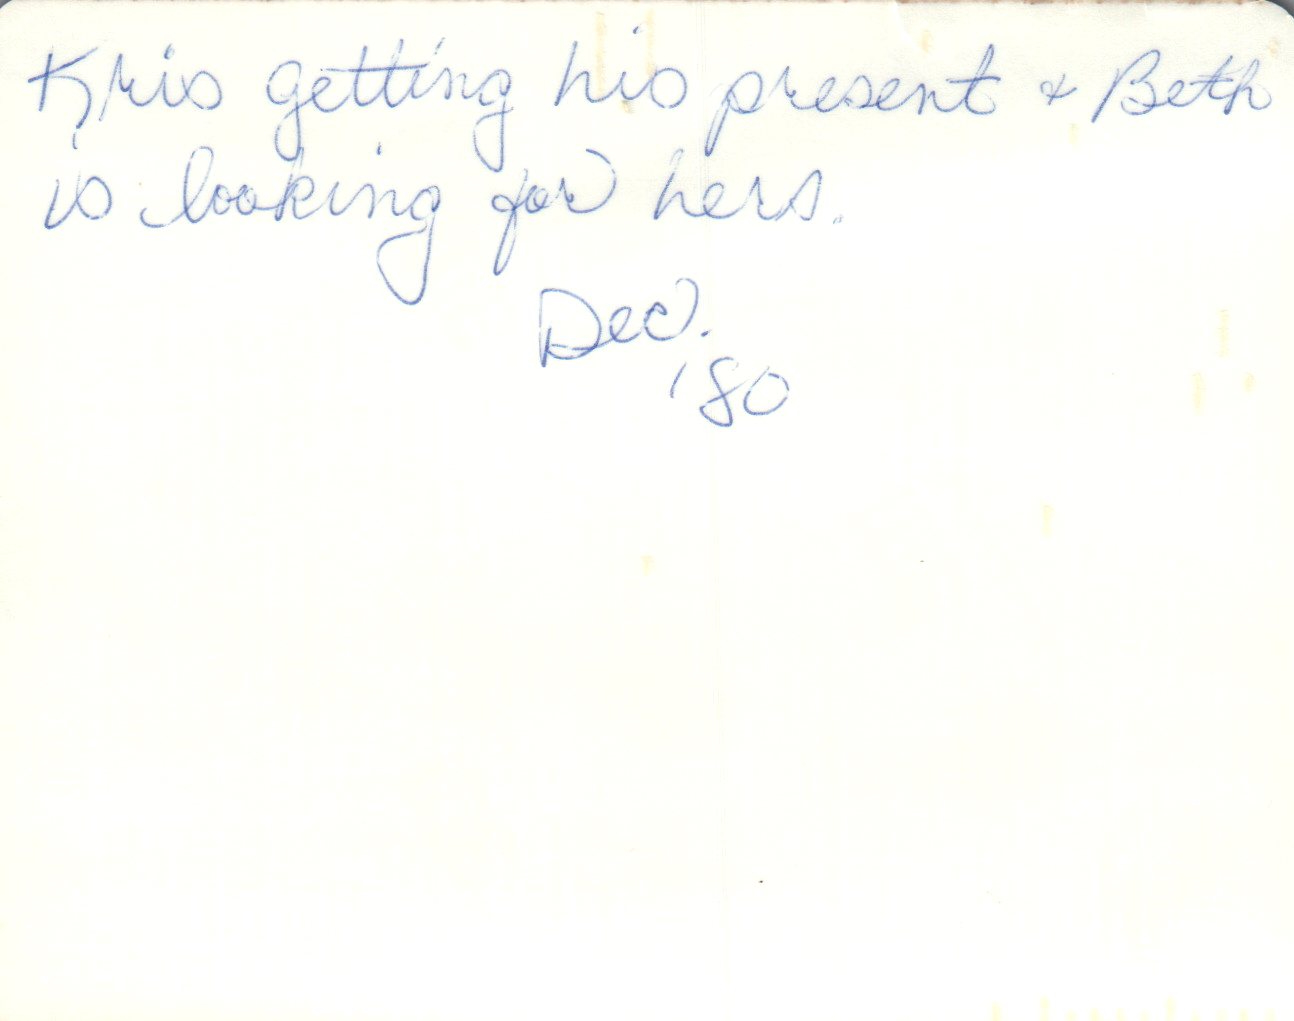 Kris getting his present & Beth
is looking for hers.
Dec.
'80